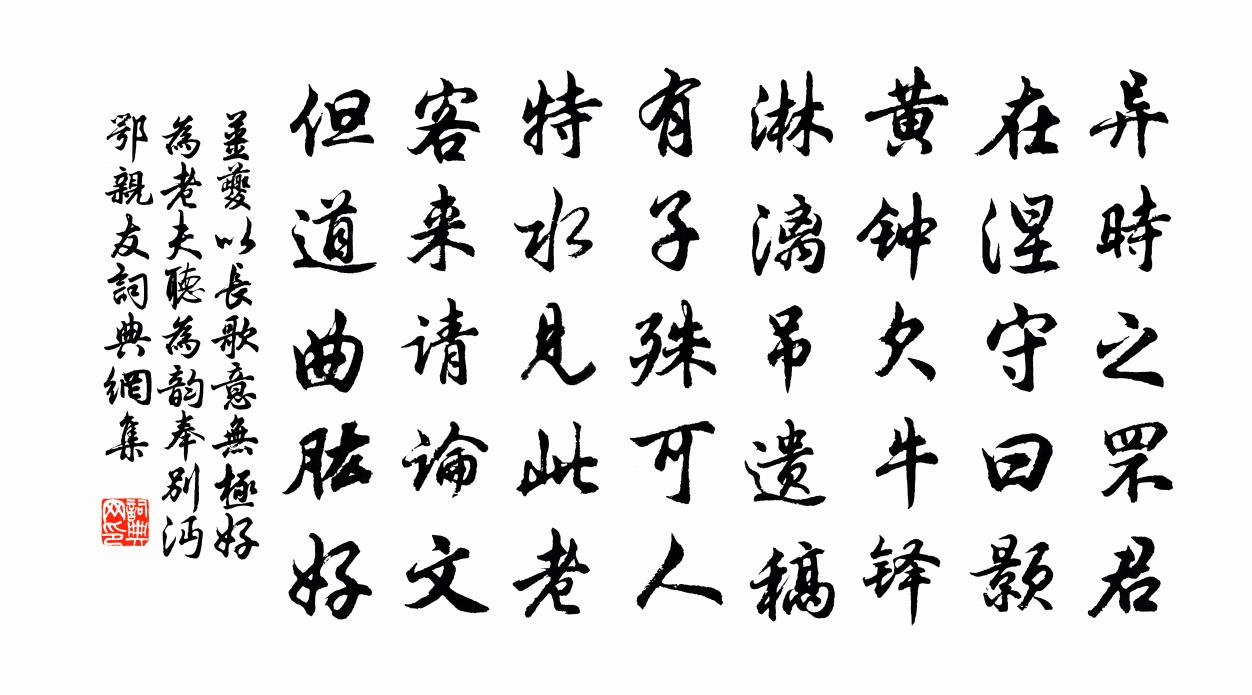 异時之罘君
在涅守曰颢
黄钟欠牛铎
淋漓吊遗稿
有子殊可人
特水见此老
客来请論文
但道曲肱好
薑夔以長歌意無極好
為老夫聽為韵奉别沔
鄂親友詞典網集
詞典
网印